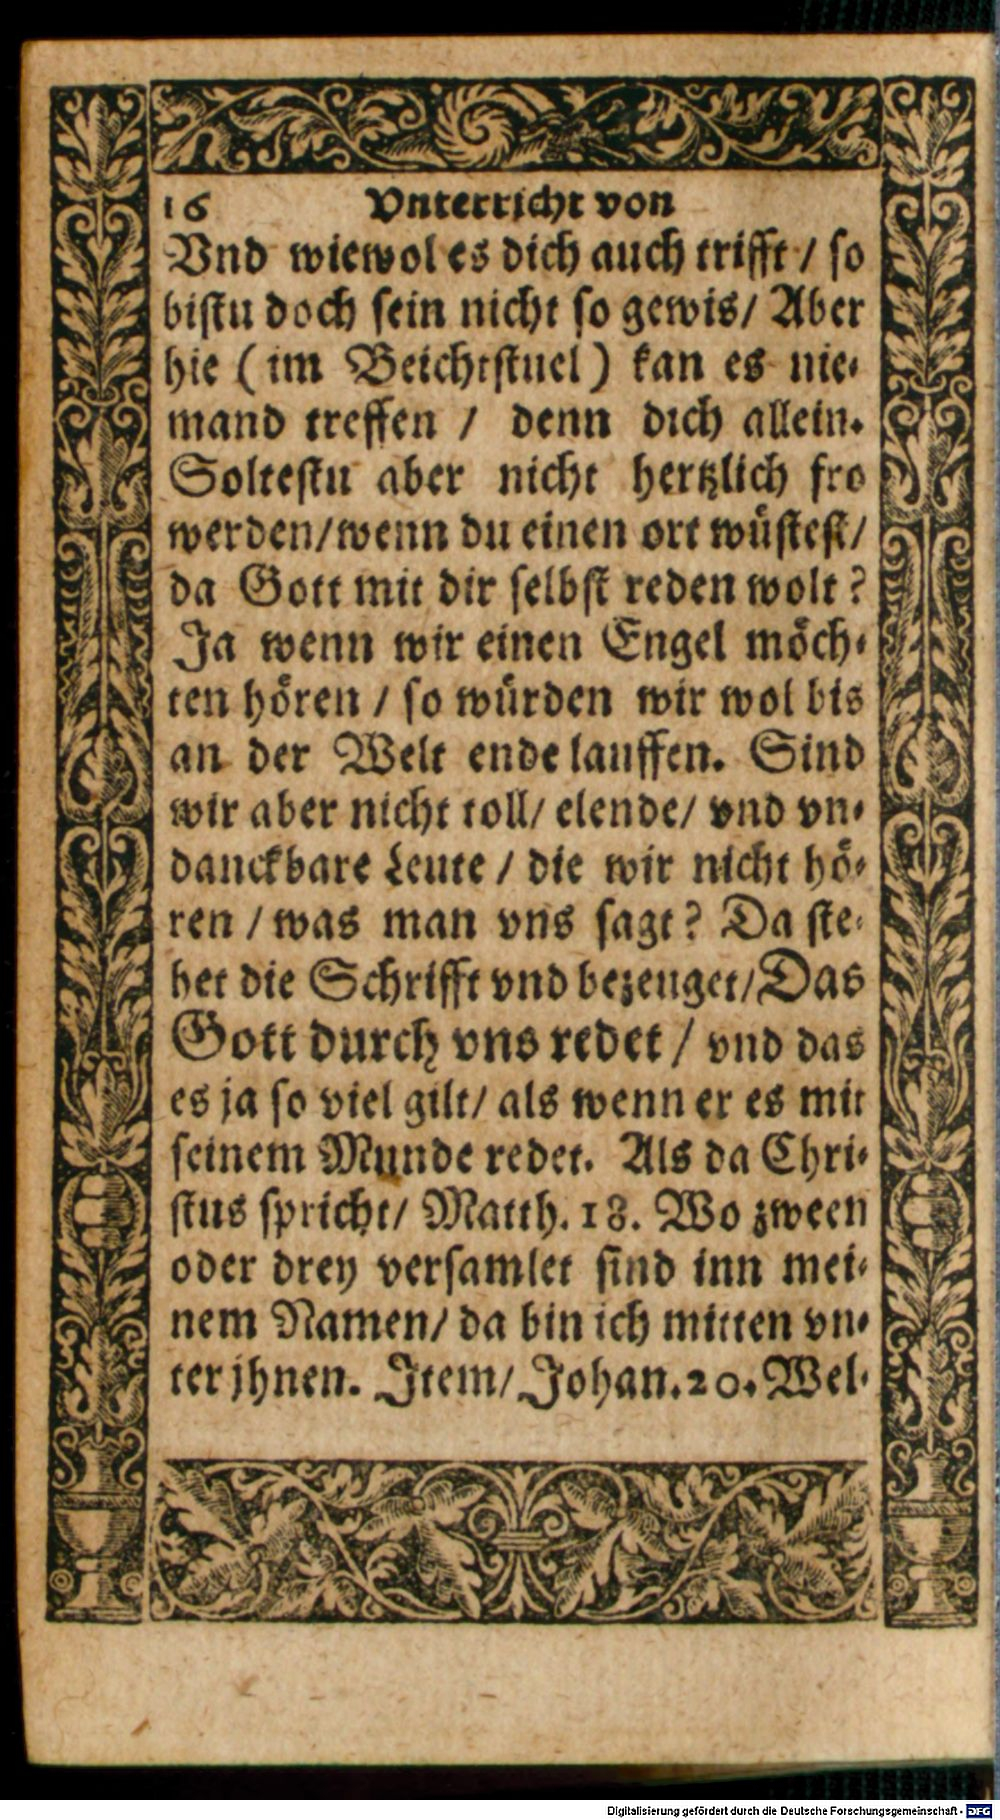 16 Vnterricht von
Vnd wiewol es dich auch trifft / so
bistu doch sein nicht so gewis / Aber
hie ( im Beichtstuel ) kan es nie-
mand treffen / denn dich allein.
Soltestu aber nicht hertzlich fro
werden / wenn du einen ort wüstest /
da Gott mit dir selbst reden wolt ?
Ja wenn wir einen Engel möch-
ten hören / so würden wir wol bis
an der Welt ende lauffen. Sind
wir aber nicht toll / elende / vnd vn-
danckbare Leute / die wir nicht hö-
ren / was man vns sagt ? Da ste-
het die Schrifft vnd bezeuget / Das
Gott durch vns redet / vnd das
es ja so viel gilt / als wenn er es mit
seinem Munde redet. Als da Chri-
stus spricht / Matth. 18. Wo zween
oder drey versamlet sind inn mei-
nem Namen / da bin ich mitten vn-
ter jhnen. Item / Johan. 20. Wel-
Digitalisierung gefördert durch die Deutsche Forschungsgemeinschaft - DFG